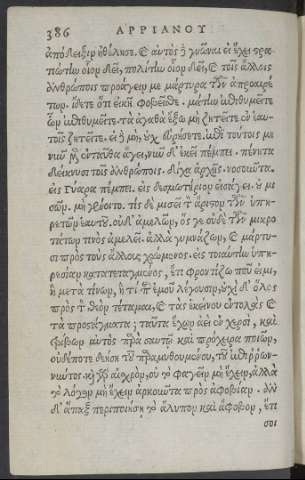 386 ΑΡΡΙΑΝΟΥ
ἀπόδειξιν ἠθέλησε. καὶ αὐτὸς γνῶναι εἰ ἔχει στρα
τιώτην οἷον δεῖ, πολίτην οἷον δεῖ, καὶ τοῖς ἄλλοις
ἀνθρώποις προάγειν με μάρτυρα τῶν ἀπροαιρέ
των. ἴδετε ὅτι εἰκῆ φοβεῖσθε. μάτην ἐπιθυμεῖτε
ὧν ἐπιθυμεῖτε. τὰ ἀγαθὰ ἔξω μὴ ζητεῖτε, ἐν ἑαυ
τοῖς ζητεῖτε. εἰ δὲ μὴ, οὐχ εὑρήσετε. ἐπὶ τούτοις με
νῦν μὲν ἐνταῦθα ἄγει, νῦν δ᾽ ἐκεῖ πέμπει. πένητα
δείκνυσι τοῖς ἀνθρώποις. δίχα ἀρχῆς. νοσοῦντα.
εἰς Γύαρα πέμπει. εἰς δεσμωτήριον εἰσάγει. οὐ μι
σῶν. μὴ γένοιτο. τίς δὲ μισεῖ τὸν ἄριστον τῶν ὑπη
ρετῶν ἑαυτοῦ. οὐδ᾽ ἀμελῶν, ὅς γε οὐδὲ τῶν μικρο
τάτων τινὸς ἀμελεῖ. ἀλλὰ γυμνάζων, καὶ μάρτυ
σι πρὸς τοὺς ἄλλους χρώμενος. εἰς τοιαύτην ὑπη
ρεσίαν κατατεταγμένος, ἔτι φροντίζω ποῦ εἰμι,
ἢ μετὰ τίνων, ἢ τί περὶ ἐμοῦ λέγουσιν, οὐχὶ δ᾽ ὅλος
πρὸς τὸν θεὸν τέταμαι, καὶ τὰς ἐκείνου ἐντολὰς καὶ
τὰ προστάγματα; ταῦτα ἔχων ἀεὶ ἐν χερσὶ, καὶ
τρίβων αὐτὸς παρὰ σαυτῷ καὶ πρόχειρα ποιῶν,
οὐδέποτε δεήσῃ τοῦ παραμυθουμένου, τοῦ ἐπιῤῥων
νύντος. καὶ γὰρ αἰσχρὸν, οὐ τὸ φαγεῖν μὴ ἔχειν, ἀλλὰ
τὸ λόγον μὴ ἔχειν ἀρκοῦντα πρὸς ἀφοβίαν. ἂν
δ᾽ ἅπαξ περιποιήσῃ τὸ ἄλυπον καὶ ἄφοβον, ἔτι
σοι